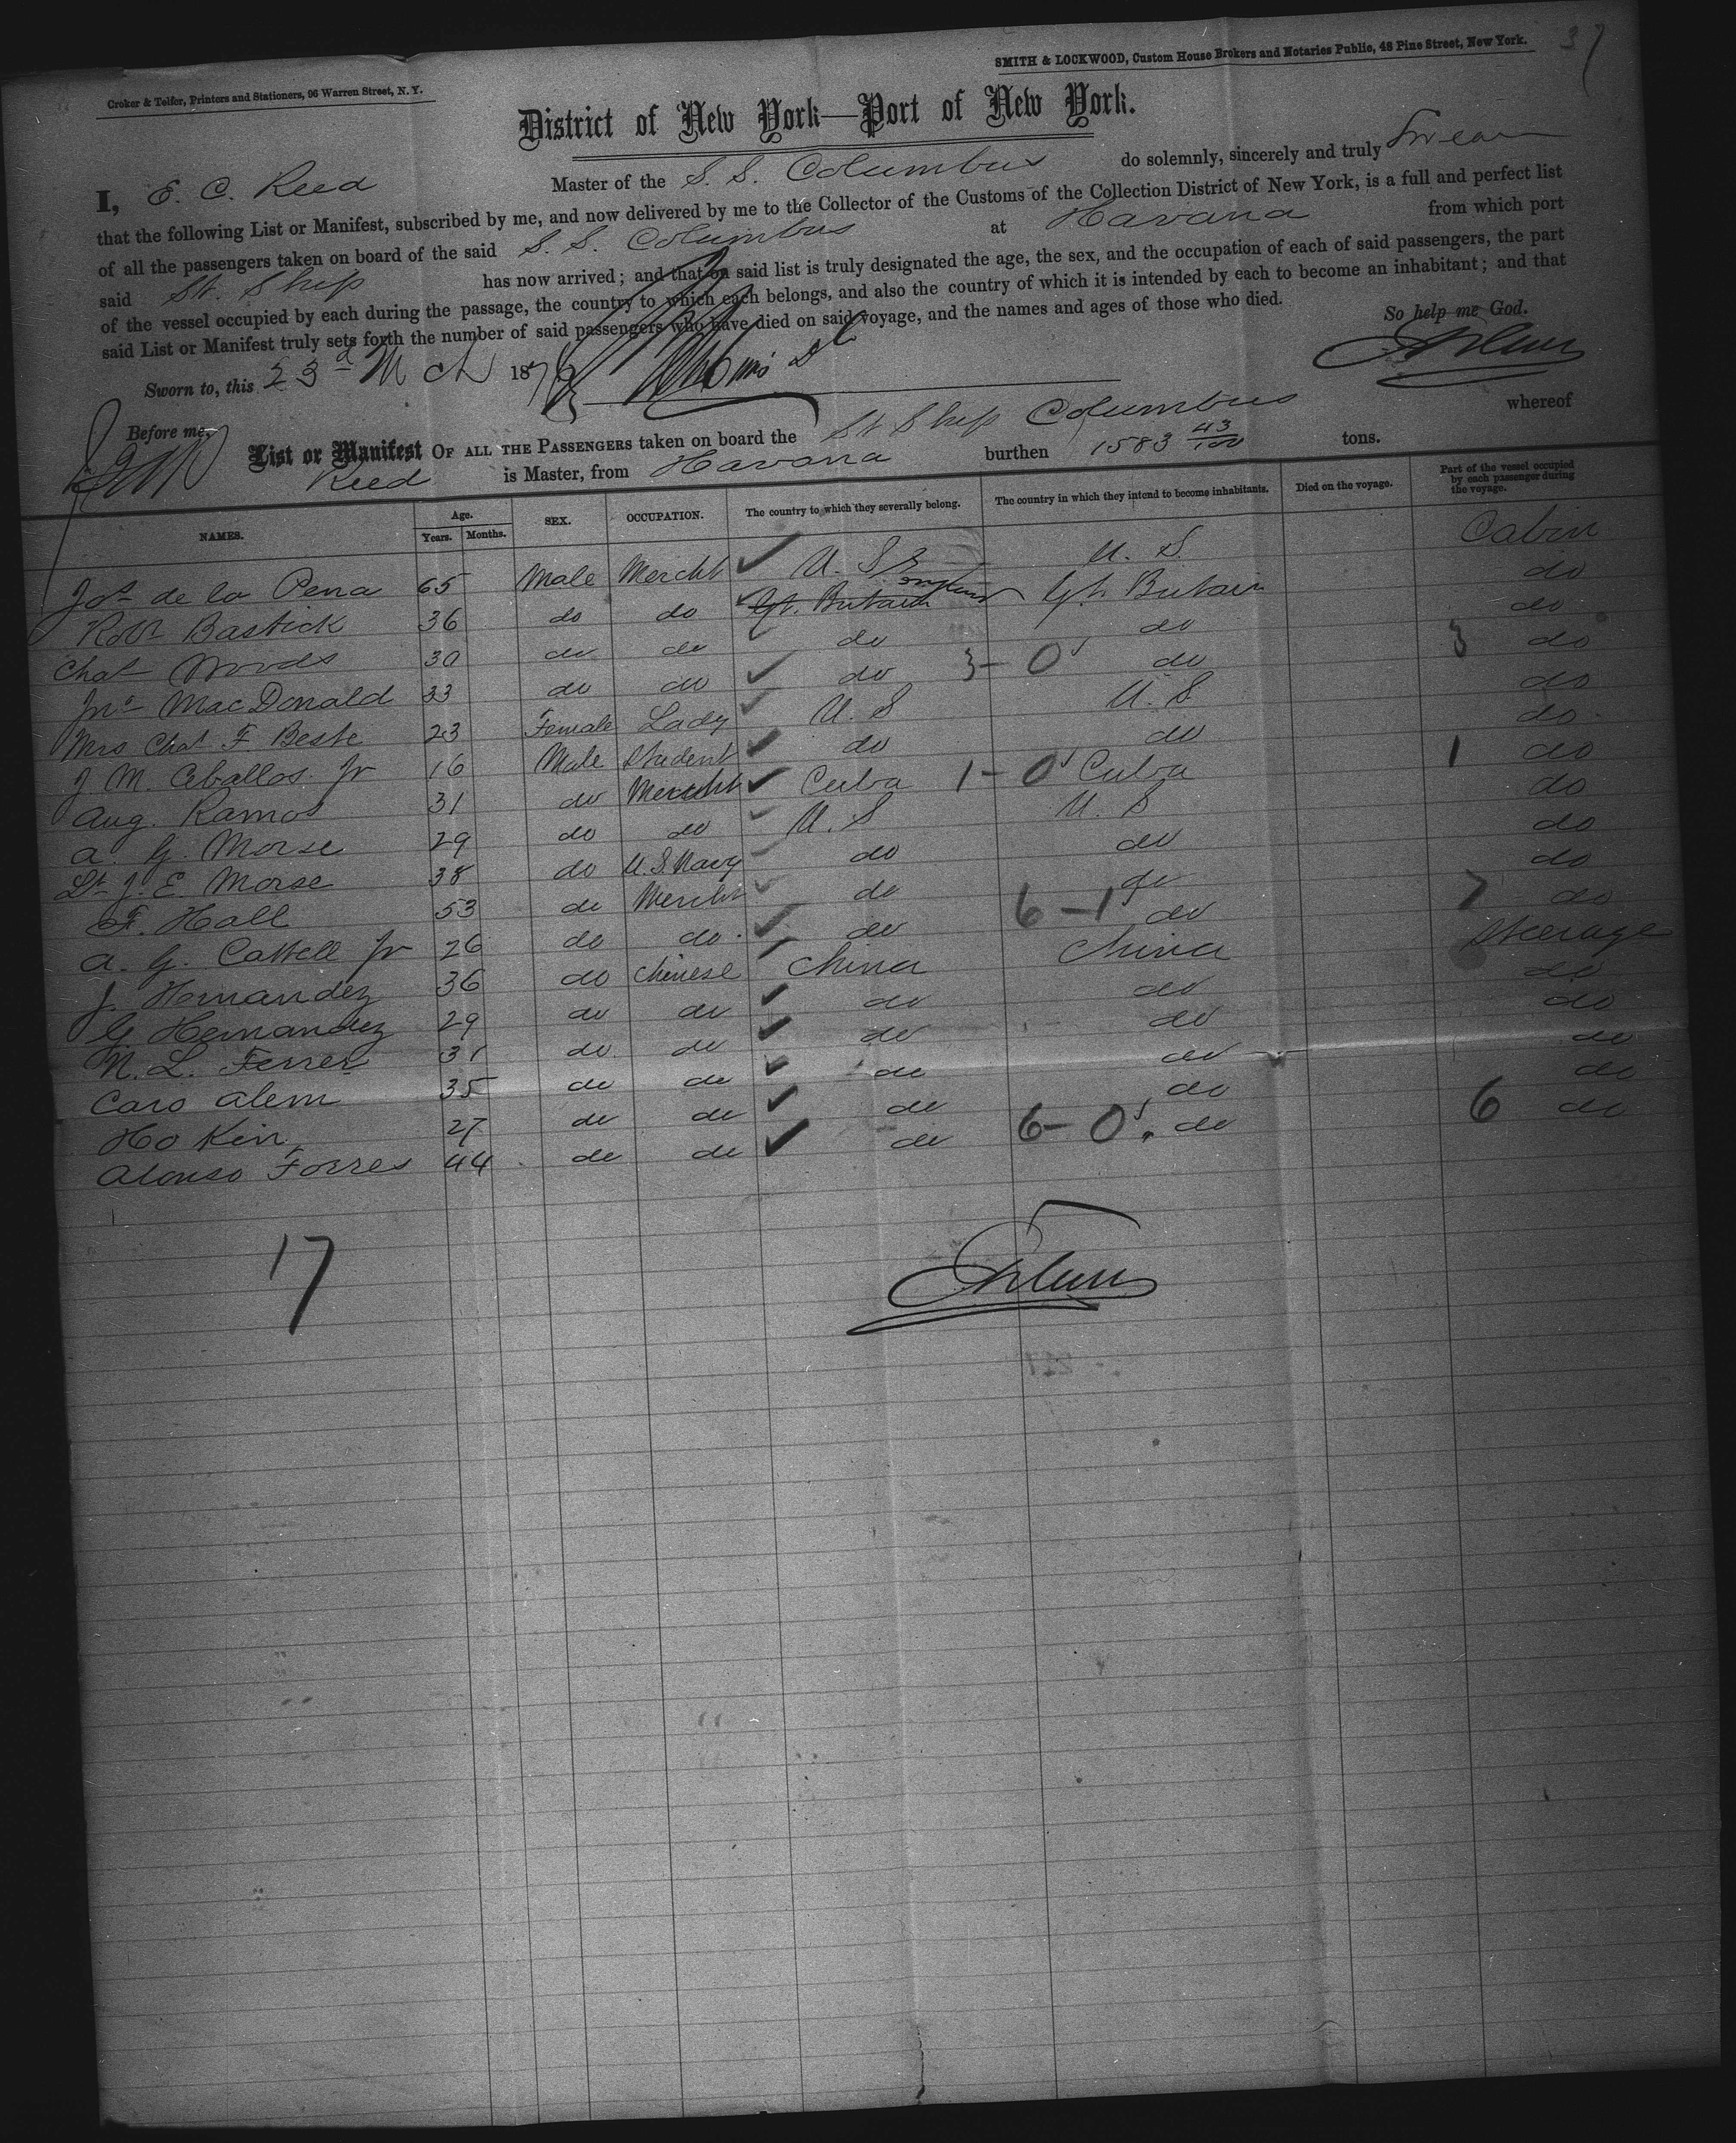 37
SMITH & LOCKWOOD, Custom House Brokers and Notaries Public, 48 Pine Street, New York.
Croker & Telfer, Printers and Stationers, 96 Warren Street, N. Y.
District of New York—Port of New York.
I, E. C. Reed Master of the S. S. Columbus do solemnly, sincerely and truly Swear
that the following List or Manifest, subscribed by me, and now delivered by me to the Collector of the Customs of the Collection District of New York, is a full and perfect list
of all the passengers taken on board of the said S. S. Columbus at Havana from which port
said St. Ship has now arrived; and that on said list is truly designated the age, the sex, and the occupation of each of said passengers, the part
of the vessel occupied by each during the passage, the country to which each belongs, and also the country of which it is intended by each to become an inhabitant; and that
said List or Manifest truly sets forth the number of said passengers who have died on said voyage, and the names and ages of those who died.
So help me God.
Sworn to, this 23d Mch 1876
Before me,
List or Manifest OF ALL THE PASSENGERS taken on board the St Ship Columbus whereof
Reed is Master, from Havana burthen 1583 43/100 tons.
NAMES. Age. Years. Months. SEX. OCCUPATION. The country to which they severally belong. The country in which they intend to become inhabitants. Died on the voyage. Part of the vessel occupied by each passenger during the voyage.
Jos de la Pena 65 Male Mercht U. S U. S. Cabin
Robt Bastick 36 do do Gt. Britain England Gt. Britain do
Chas Woods 30 do do do do do
Jno MacDonald 33 do do do 3-0 do 3 do
Mrs Chas F Beste 23 Female Lady U. S U. S do
J M. Ceballos Jr 16 Male Student do do do
Aug. Ramos 31 do Mercht Cuba 1-0 Cuba 1 do
A. G. Morse 29 do do U. S U. S do
Lt J. E. Morse 38 do U. S Navy do do do
F. Hall 53 do Mercht do do do
A. G. Cattell Jr 26 do do. do 6-1 do 7 do
J Hernandez 36 do Chinese China China Steerage
G Hernandez 29 do do do do do
N. L. Ferrer 31 do do do do do
Caro Alem 35 do do do do do
Ho Kin 27 do do do do do
Alonso Torres 44 do do do 6-0 do 6 do
17